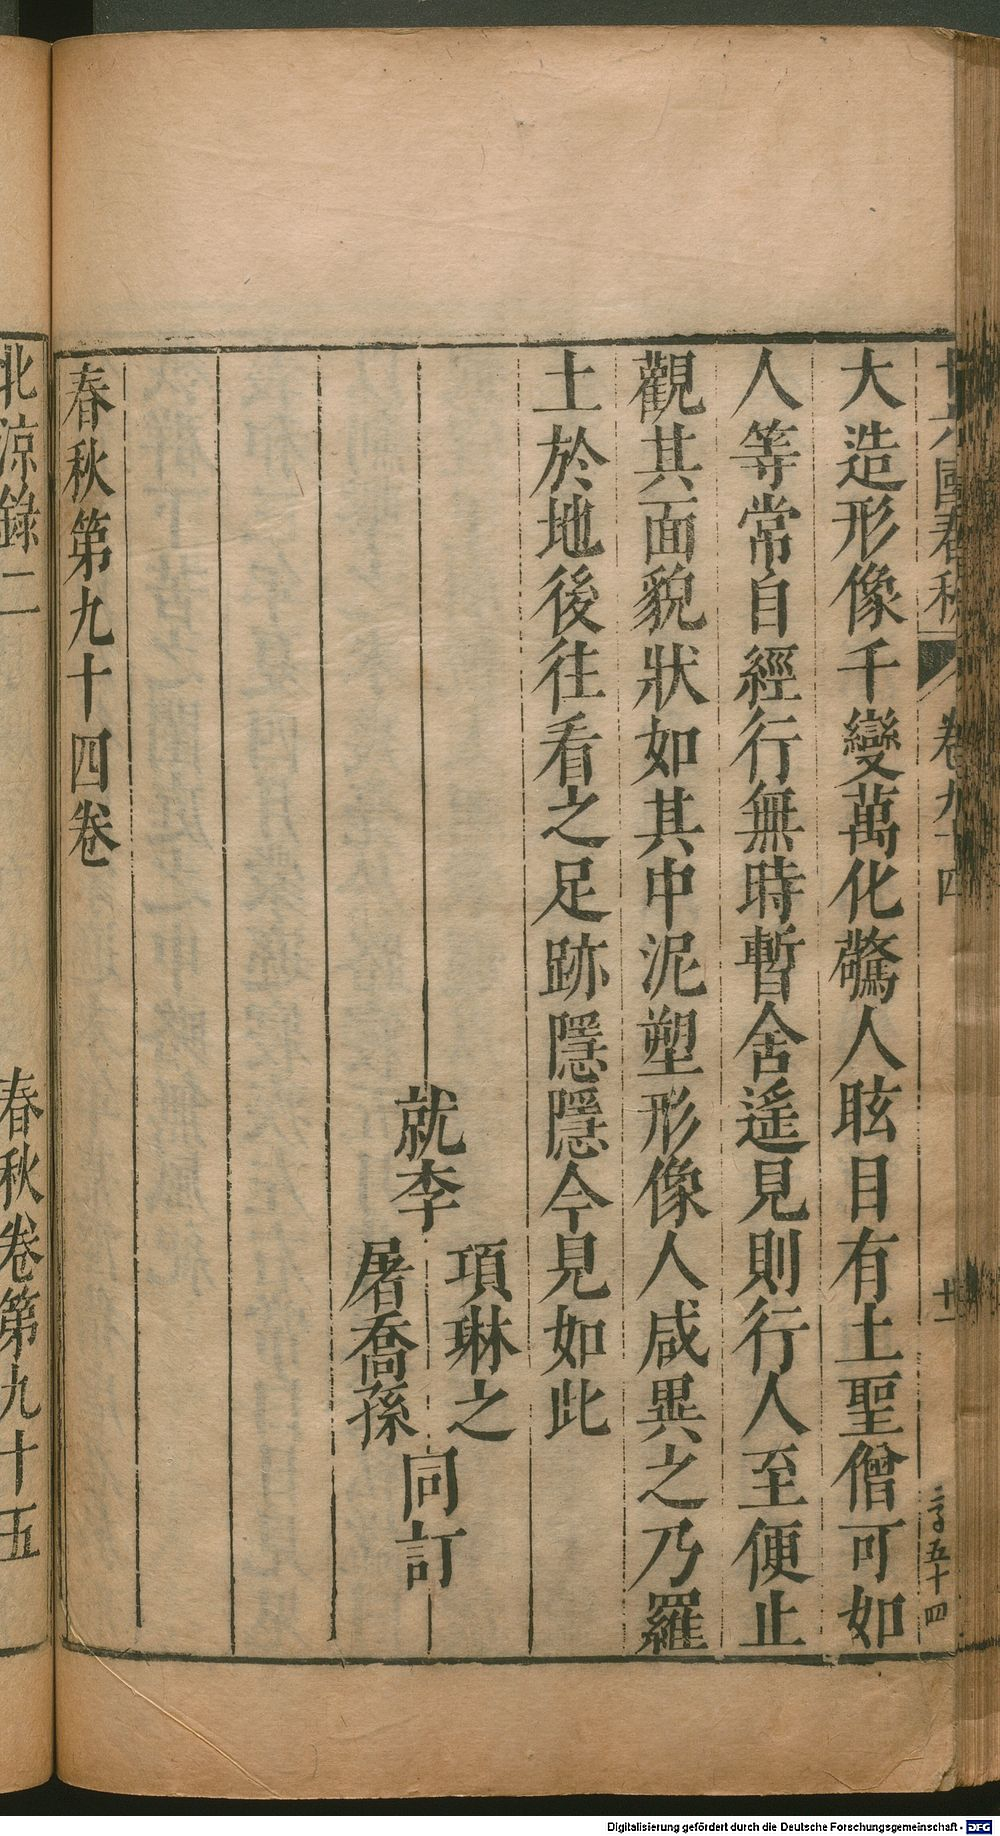 十六國春秋 卷九十四 廿一 二字五十四
大造形像千變萬化驚人眩目有土聖僧可如
人等常自經行無時暫舍遙見則行人至便止
觀其面貌狀如其中泥塑形像人咸異之乃羅
土於地後往看之足跡隱隱今見如此
就李 項琳之 屠喬孫 同訂
春秋第九十四卷
北涼錄二 春秋卷第九十五
Digitalisierung gefördert durch die Deutsche Forschungsgemeinschaft - DFG